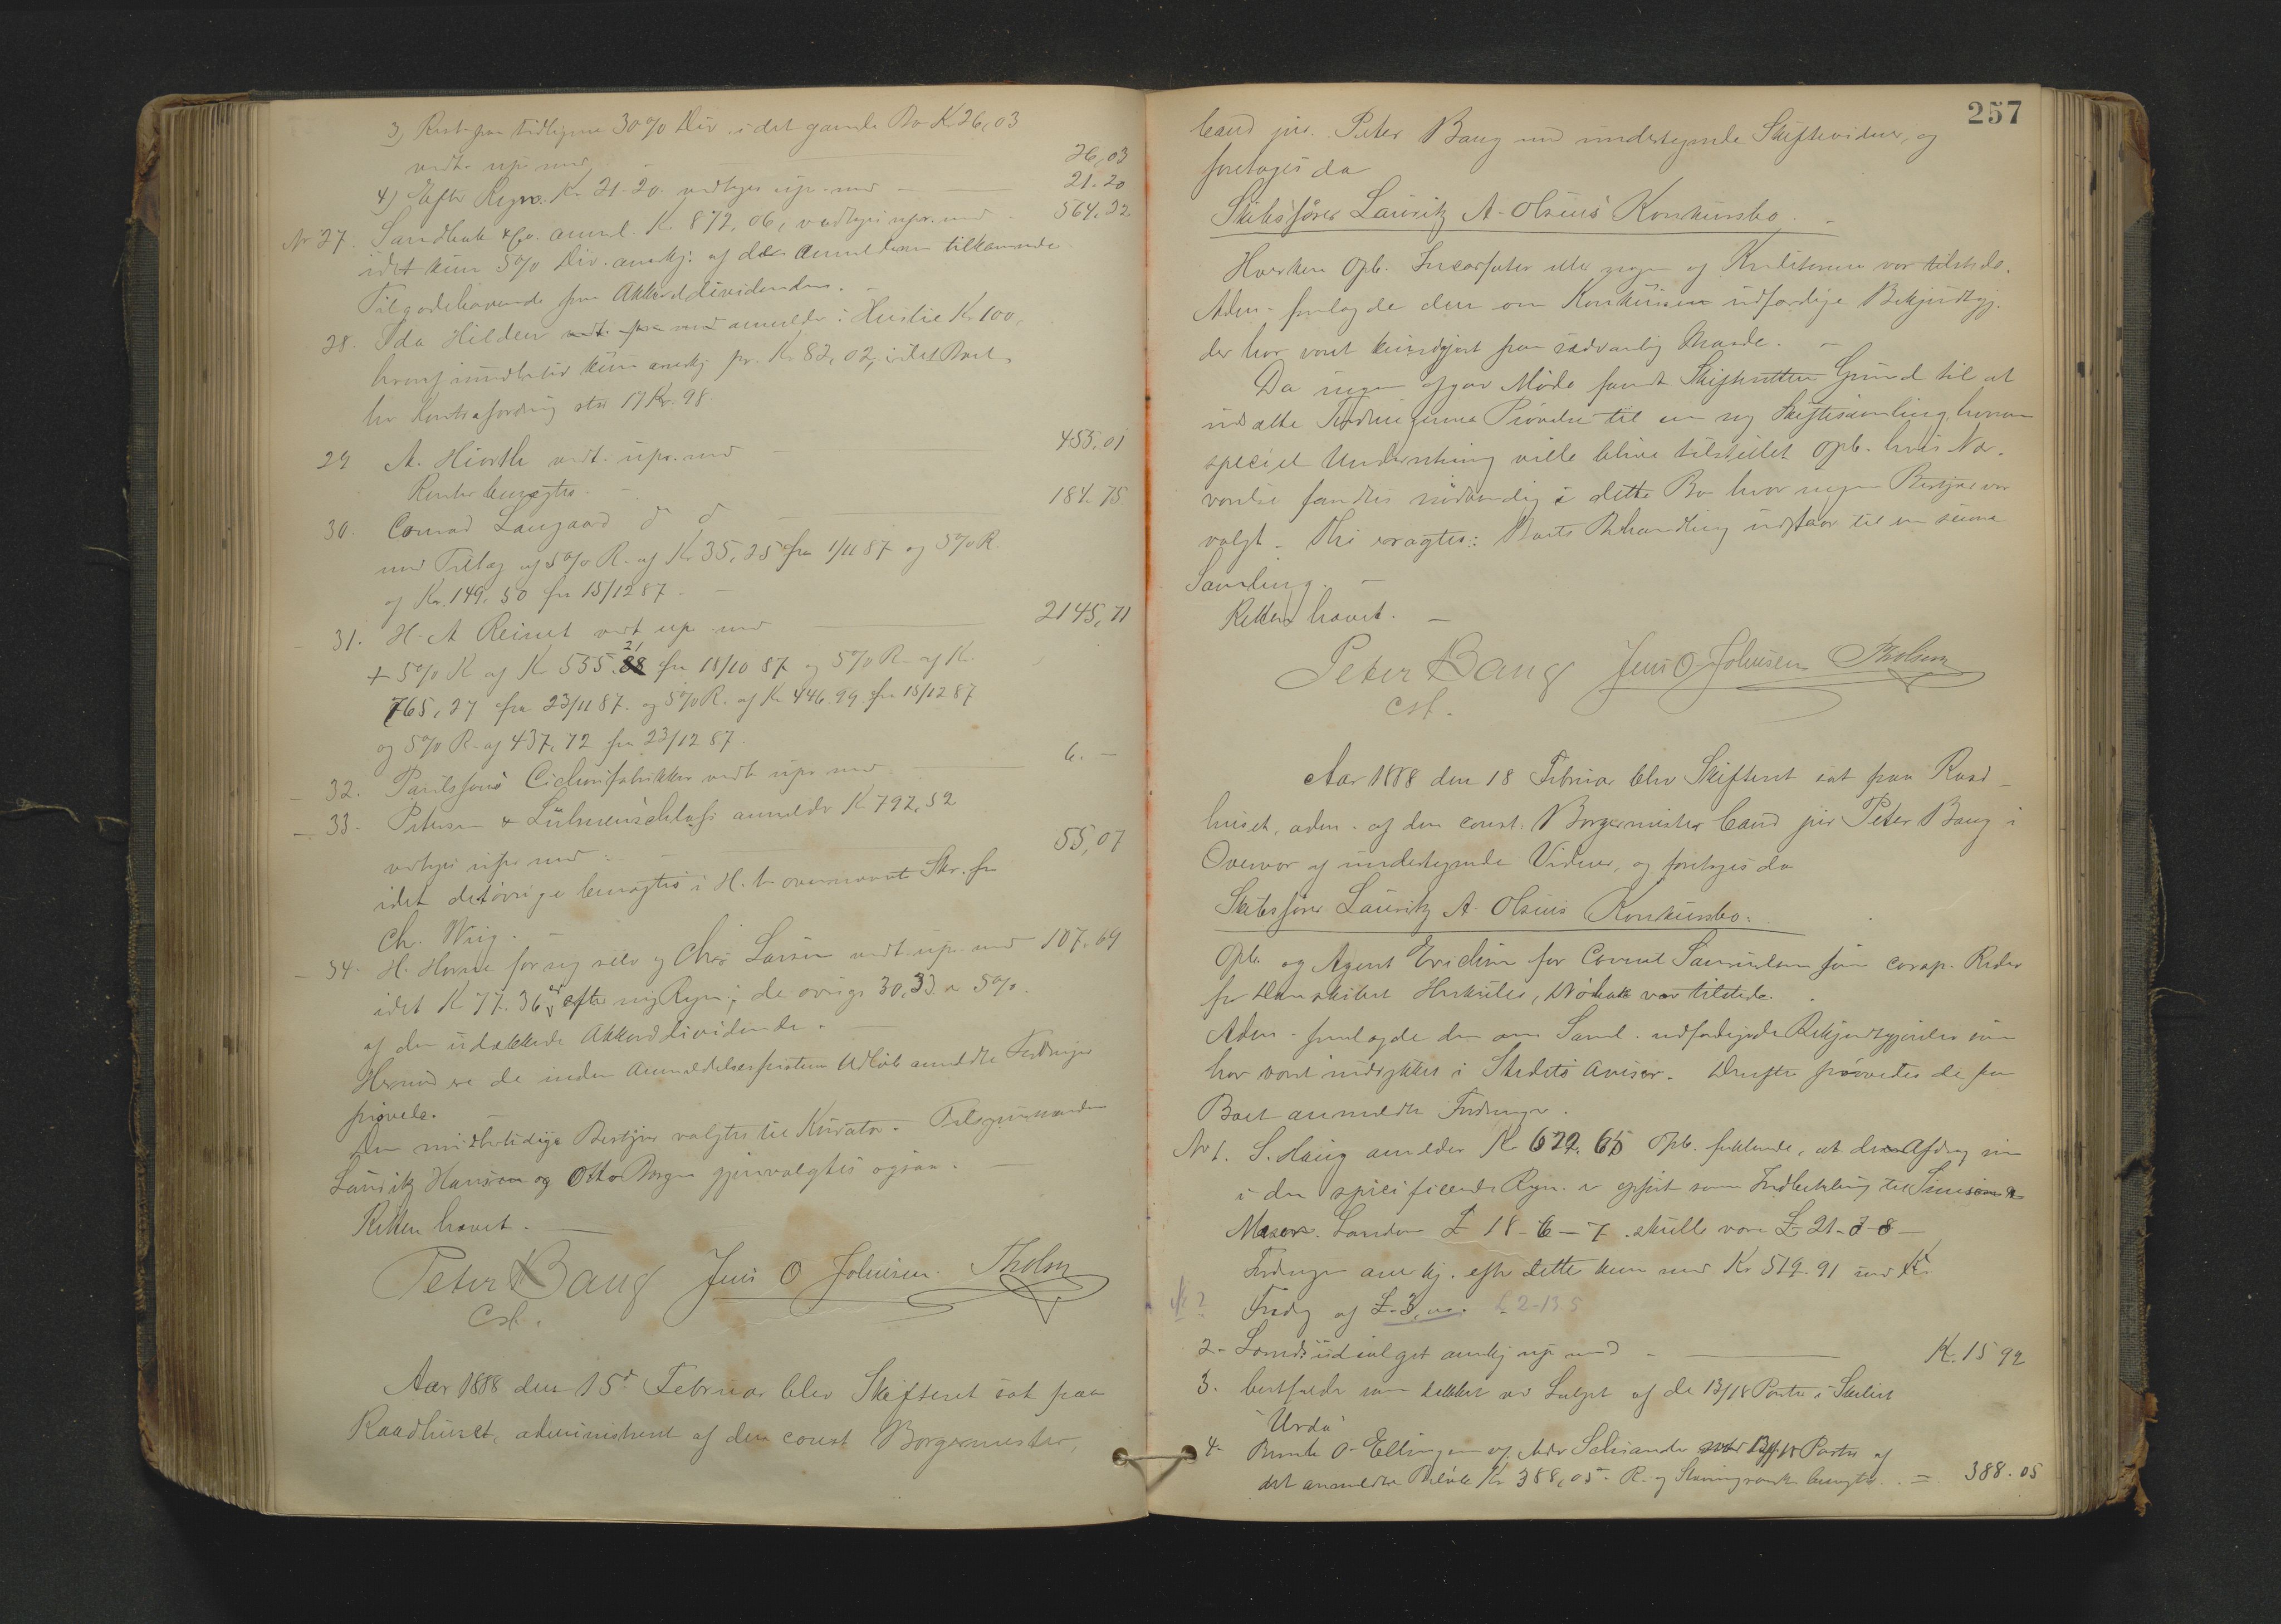 3) Rest fra tidligere 30% Div. i det gamle Bo K 26,03
vedt. upr. med 26,03
4) Efter Regn. K. 21-20. vedtages upr. med 21.20
Nr 27. Sandbak & Co. anmel. K. 872,06, vedtages upr. med 564,22
idet kun 5% Div. anerkj. af det Anmelderen tilkommende
Tilgodehavende fra Akkorddividenden.
28. Ida Hilden anmelder i Huslie Kr 100,
hvoraf imidlertid kun anerkj. pr. Kr 82,02, idet Boet
har Kontrafordring stor 17 Kr. 98.
29 A. Hiorth vedt. upr. med 455,01
Renter benægtes.
30. Conrad Langaard d d 184.75
med Tillæg af 5% R. af Kr 35,25 fra 1/11 87 og 5% R.
af Kr. 149,50 fra 15/12 87.
31. H. A Reinert vedt upr. med 2145,71
+ 5% R af Kr 535.21 fra 18/10 87 og 5% R. af K.
765,27 fra 23/11 87. og 5% R. af Kr. 446.99. fra 15/12 87
og 5% R. af 437,72 fra 23/12 87.
32. Paulssons Cichorifabrikker vedt upr med 6.-
33. Petersen & anmelder K 792,52
vedtages upr. med: 55,07
idet detøvrige benægtes i H. t. Skr. fra
Chr. Wiig.
34. H. Horne for sig selv og Chrs Larsen vedt. upr. med 107.69
idet K 77.36 er efter ny Regn; de øvrige 30,33 er 5%
af den udækkede Akkorddividende.
Hermed ere de inden Anmeldelsesfristens Udløb anmeldte Fordringer
prøvede.
Den midlertidige Bestyrer valgtes til Kurator. Tilsynsmændene
Lauritz Hansson og Otto Borgen gjenvalgtes ogsaa.
Retten hævet.
Peter Bang Jens O Johnsen. Tholsen
Cst.
Aar 1888 den 15d Februar blev Skifteret sat paa
Raadhuset, administrert af den const Borgermester,
257
Cand jur. Peter Bang med undertegnede Skiftevidner, og
foretoges da
Skibsfører Lauritz A. Olsens Konkursbo.
Hverken Opb. Incassator eller nogen af Kreditorerne var tilstede.
Adm. fremlagde den om Konkursen udfærdige Bekjendtgj.
der har været kundgjort paa sædvanlig Maade.
Da ingen afgav Møde fandt Skifteretten Grund til at
udsætte Fordringernes Prøvelse til en ny Skiftesamling, hvorom
speciel Underretning ville blive tilstillet Opb. hvis Nær-
værelse fandtes nødvendig i dette Bo hvor ingen Bestyrer var
valgt. Thi eragtes: Boets Behandling udstaar til en senere
Samling.
Retten hævet.
Peter Bang Jens O. Johnsen Tholsen
cst.
Aar 1888 den 18 Februar blev Skifteret sat paa Raad-
huset, adm. af den const. Borgermester Cand jur Peter Bang i
Overvær af undertegnede Vidner, og foretoges da
Skibsfører Lauritz A. Olsens Konkursbo.
Opb. og Agent Erichsen for Consul Samuelsen som corresp. Reder
for Herkules, var tilstede.
Adm. fremlagde den om Saml. udfærdigede Bekjendtgjørelse som
har været indrykket i Stedets Aviser. Derefter prøvedes de for
Boet anmeldte Fordringer.
Nr 1. S. Haug anmelder K 622.65 Opb. forklarede, at den Afdrag som
i den specificerede Regn. er opført som Indbetaling til Simson &
Mason. London £ 18-6-7. skulle være £ 21-0-8
Fordringen anerkj. efter dette kun med Kr 519.91
Fradrag af £-3, £ 2-13 5
2. Lomdsudvalget anerkj upr med K. 15 92
3. bortfalder som dækket ved Salget af de 13/18 Parter i Skibet
"Urda"
4. Bernt O. Ellingsen og Parter af
det anmeldte Beløb Kr 388,05. R. og benægtes. = 388.05